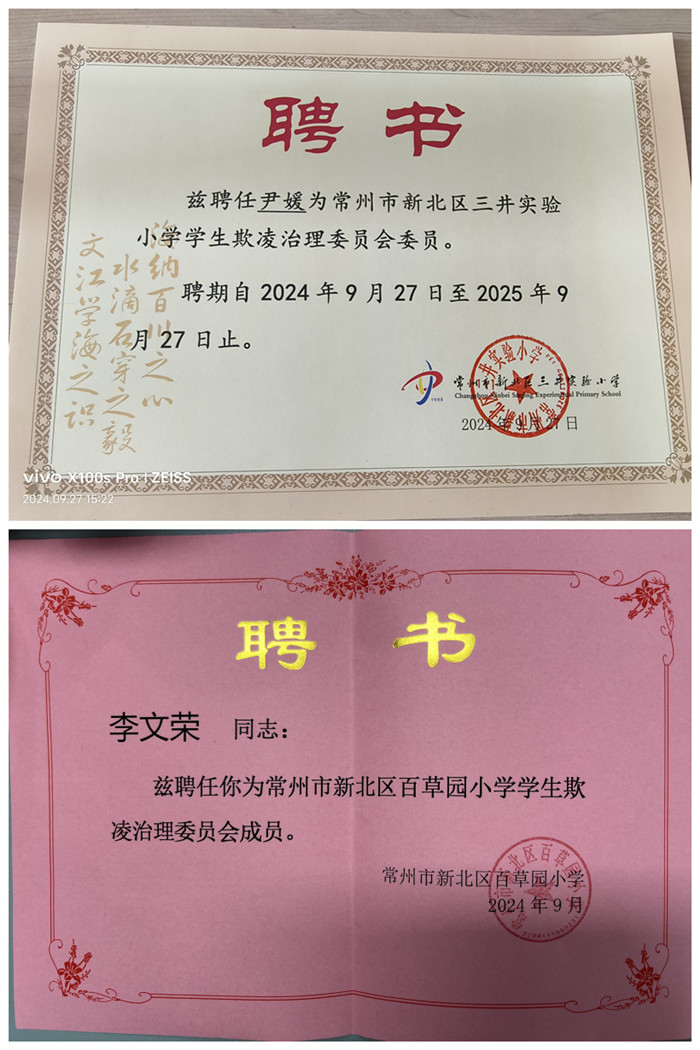 聘 书
兹聘任尹媛为常州市新北区三井实验
小学学生欺凌治理委员会委员。
聘期自 2024 年 9 月 27 日至 2025 年 9
月 27 日止。
海纳百川之心
水滴石穿之毅
文江学海之识
1983
常州市新北区三井实验小学
Changzhou Xinbei Sanjing Experimental Primary School
2024 年 9 月 27 日
vivo X100s Pro | ZEISS
2024.09.27 15:22
聘 书
李文荣 同志：
兹聘任你为常州市新北区百草园小学学生欺
凌治理委员会成员。
常州市新北区百草园小学
2024 年 9 月